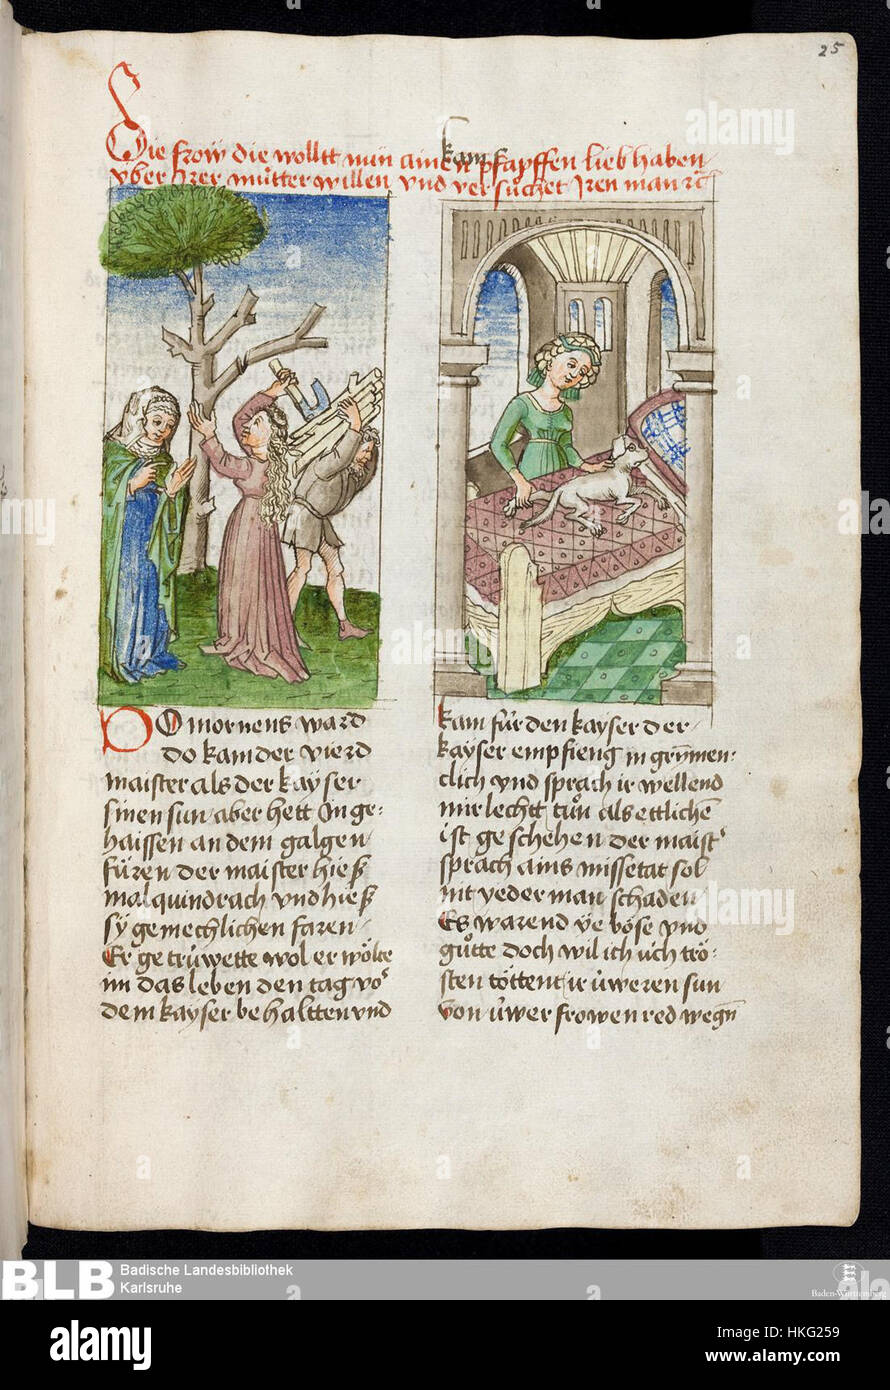 25
Die frow die wolltt nun ainen pfapffen lieb haben
vber irer mu̍tter willen vnd versu̍chet iren man
DO mornens ward
do kam der vierd
maister als der kayser
sinen sun aber hett In ge:
haissen an dem galgen
fu̍ren der maister hieß
malquindrach vnd hieß
sy gemechlichen faren
Er getru̍wette wol er wo̍lte
im das leben den tag vor
dem kayser behaltten vnd
kam fu̍r den kayser der
kayser empfieng in gry̍men:
clich vnd sprach ir wellend
mir lechtt tu̍n als ettlichē
ist geschehen der maist
sprach ains missetat sol
nit yederman schaden
Es warend ye böse vnd
gu̍tte doch wil ich u̍ch trö:
sten töttent ir u̍weren sun
von u̍wer frowen red wegn̄
BLB Badische Landesbibliothek
Karlsruhe
Baden-Württemberg
alamy
alamy stock photo
HKG259
www.alamy.com